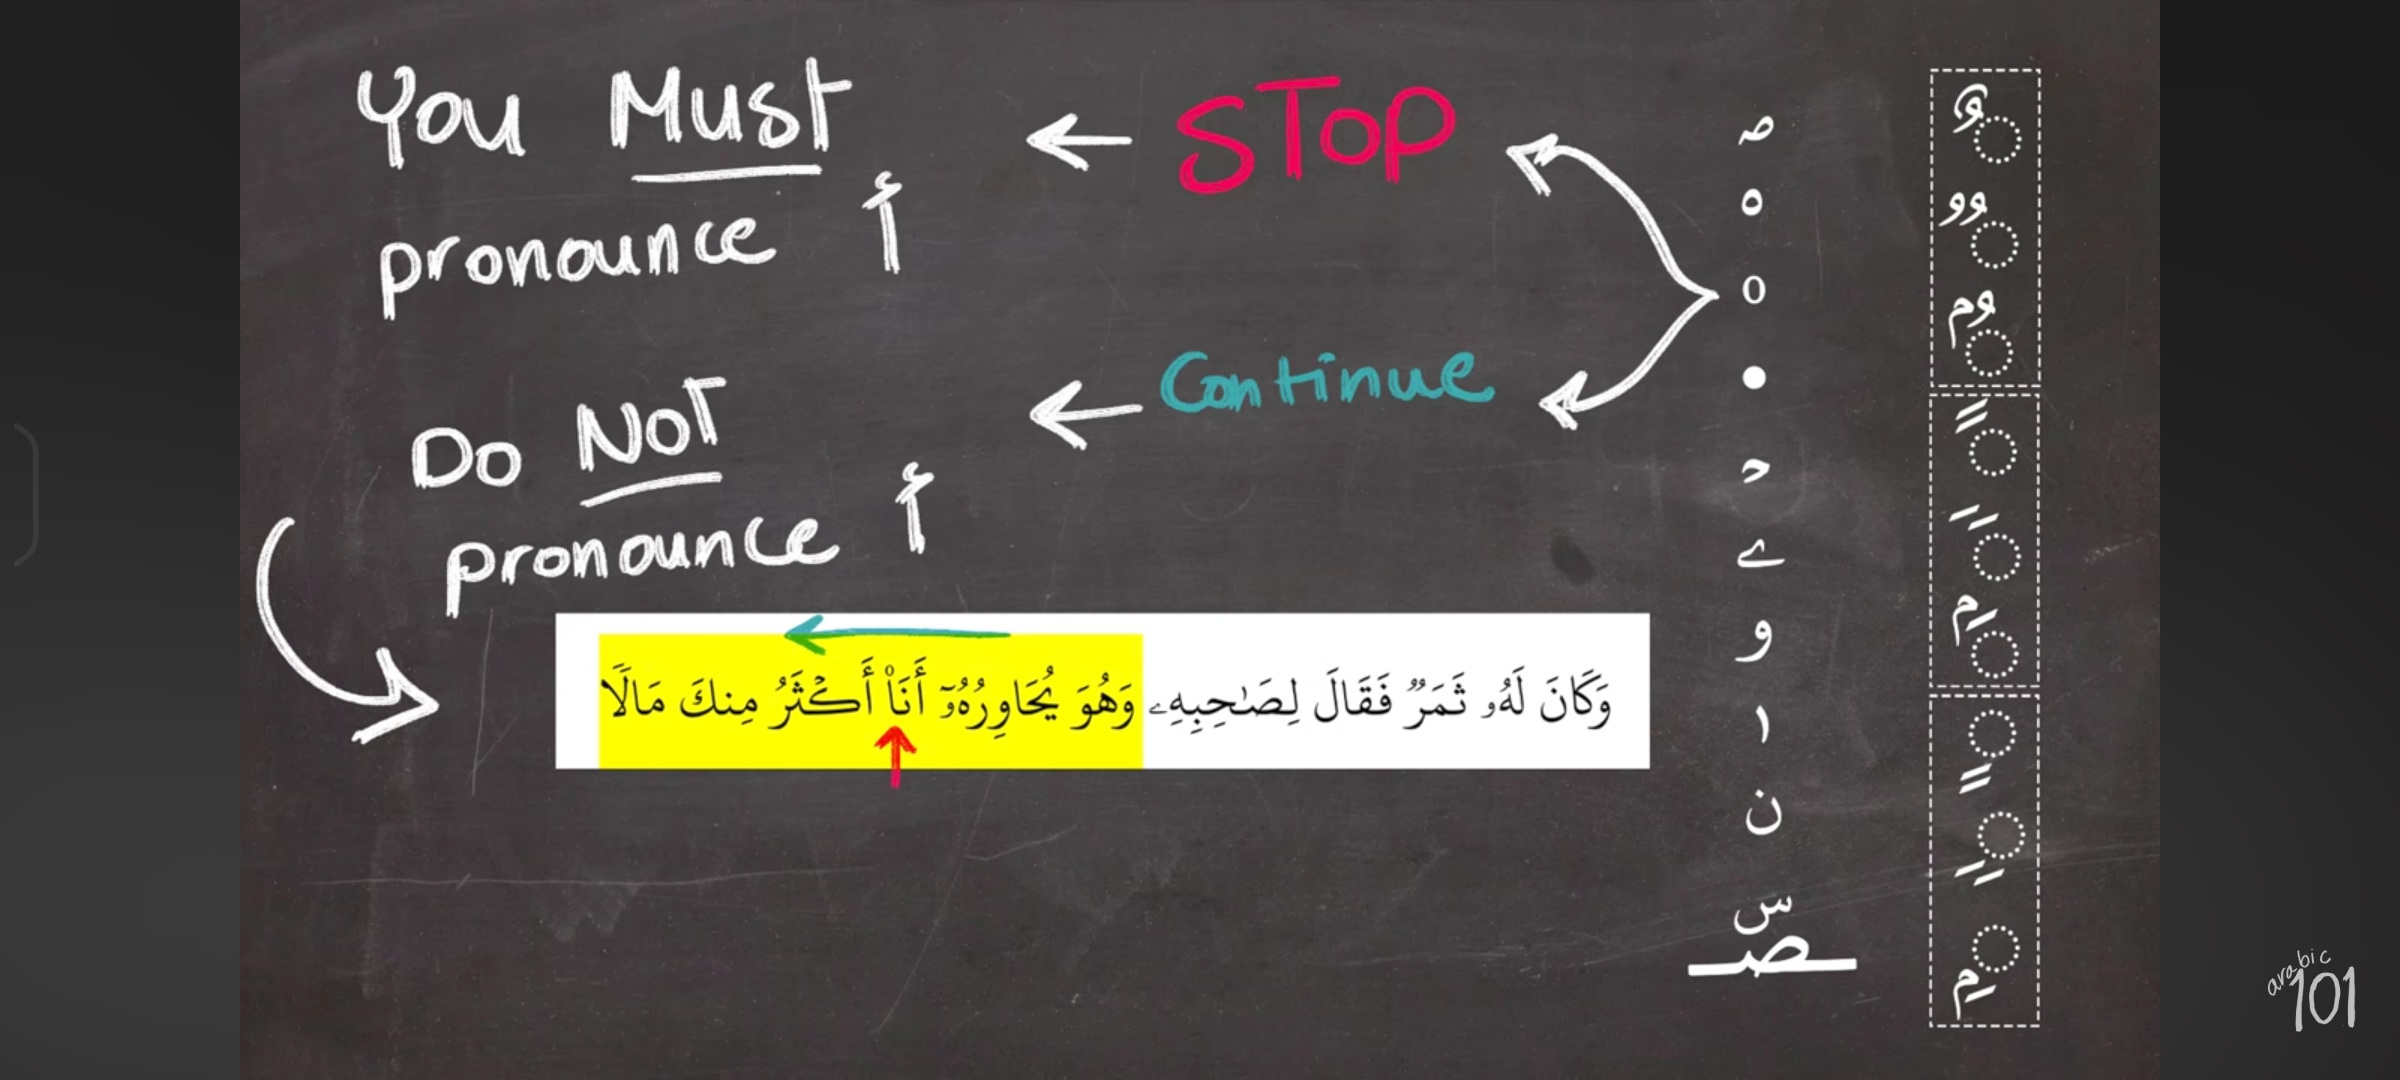 You Must
pronounce أ
← STOP
Do NOT
pronounce أ
← Continue
وَكَانَ لَهُۥ ثَمَرٌ فَقَالَ لِصَـٰحِبِهِۦ وَهُوَ يُحَاوِرُهُۥٓ أَنَا۠ أَكْثَرُ مِنكَ مَالًا
صه
ه
o
●
د
ے
و
ا
ن
س
صـ
arabic
101